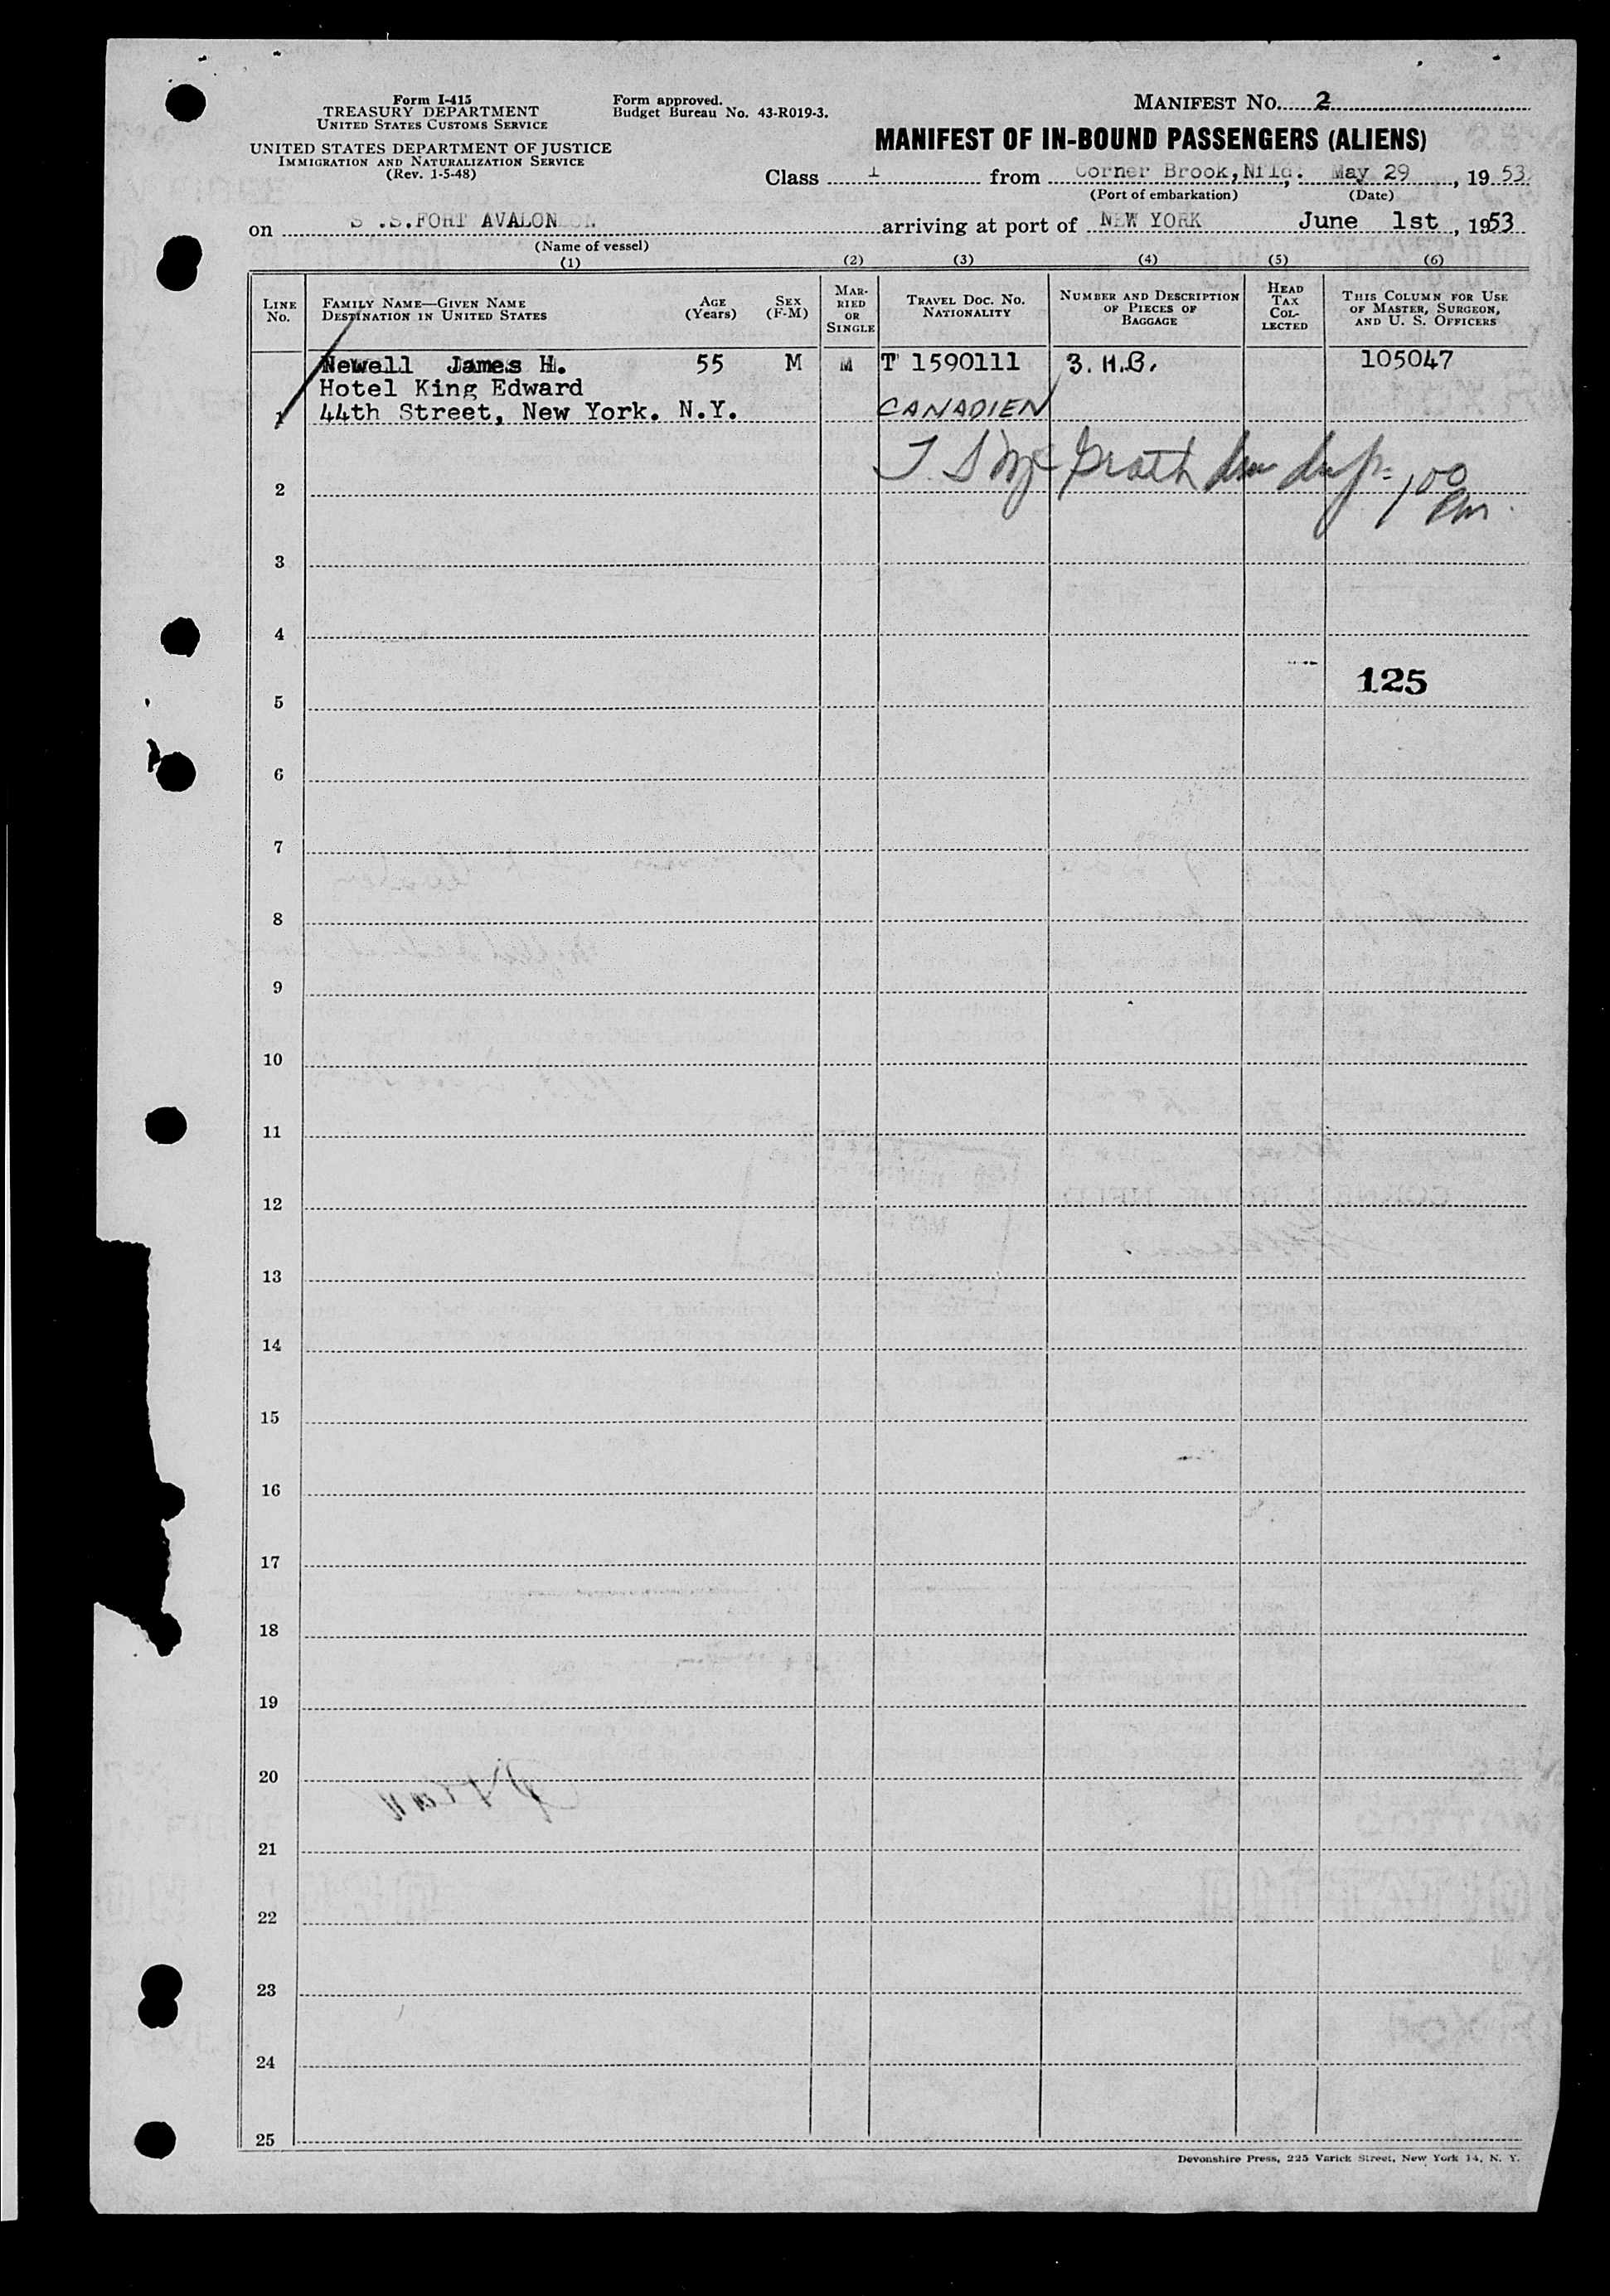 Form I-415
TREASURY DEPARTMENT
UNITED STATES CUSTOMS SERVICE
UNITED STATES DEPARTMENT OF JUSTICE
IMMIGRATION AND NATURALIZATION SERVICE
(Rev. 1-5-48)
Form approved.
Budget Bureau No. 43-R019-3.
MANIFEST NO. 2
MANIFEST OF IN-BOUND PASSENGERS (ALIENS)
Class 1 from Corner Brook, Nfld. May 29, 1953
(Port of embarkation) (Date)
on S.S.FORT AVALON arriving at port of NEW YORK June 1st, 1953
(Name of vessel)
(1) (2) (3) (4) (5) (6)
LINE NO.
FAMILY NAME—GIVEN NAME
DESTINATION IN UNITED STATES
AGE (Years)
SEX (F-M)
MARRIED OR SINGLE
TRAVEL DOC. NO. NATIONALITY
NUMBER AND DESCRIPTION OF PIECES OF BAGGAGE
HEAD TAX COLLECTED
THIS COLUMN FOR USE OF MASTER, SURGEON, AND U. S. OFFICERS
Newell James H. 55 M M T 1590111 3. H.B. 105047
Hotel King Edward
1 44th Street, New York. N.Y. CANADIEN
T. S McGrath 1 00 Pm.
2
3
4
125
5
6
7
8
9
10
11
12
13
14
15
16
17
18
19
20
21
22
23
24
25
Devonshire Press, 225 Varick Street, New York 14, N. Y.